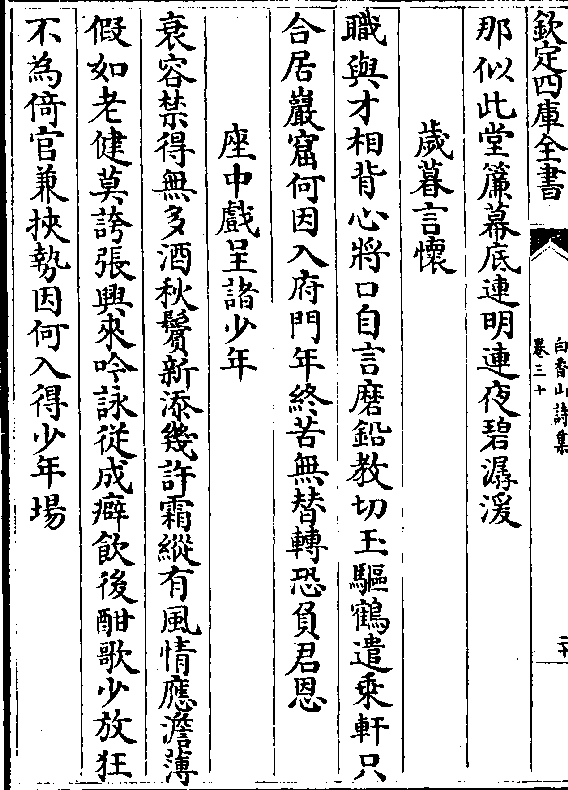 欽定四庫全書
白香山詩集
卷三十
二十
那似此堂簾幕底連明連夜碧潺湲
歲暮言懷
職與才相背心將口自言磨鉛教切玉驅鶴遣乘軒只
合居巖窟何因入府門年終苦無替轉恐負君恩
座中戲呈諸少年
衰容禁得無多酒秋鬢新添幾許霜縱有風情應澹薄
假如老健莫誇張興來吟詠從成癖飲後酣歌少放狂
不為倚官兼挾勢因何入得少年場